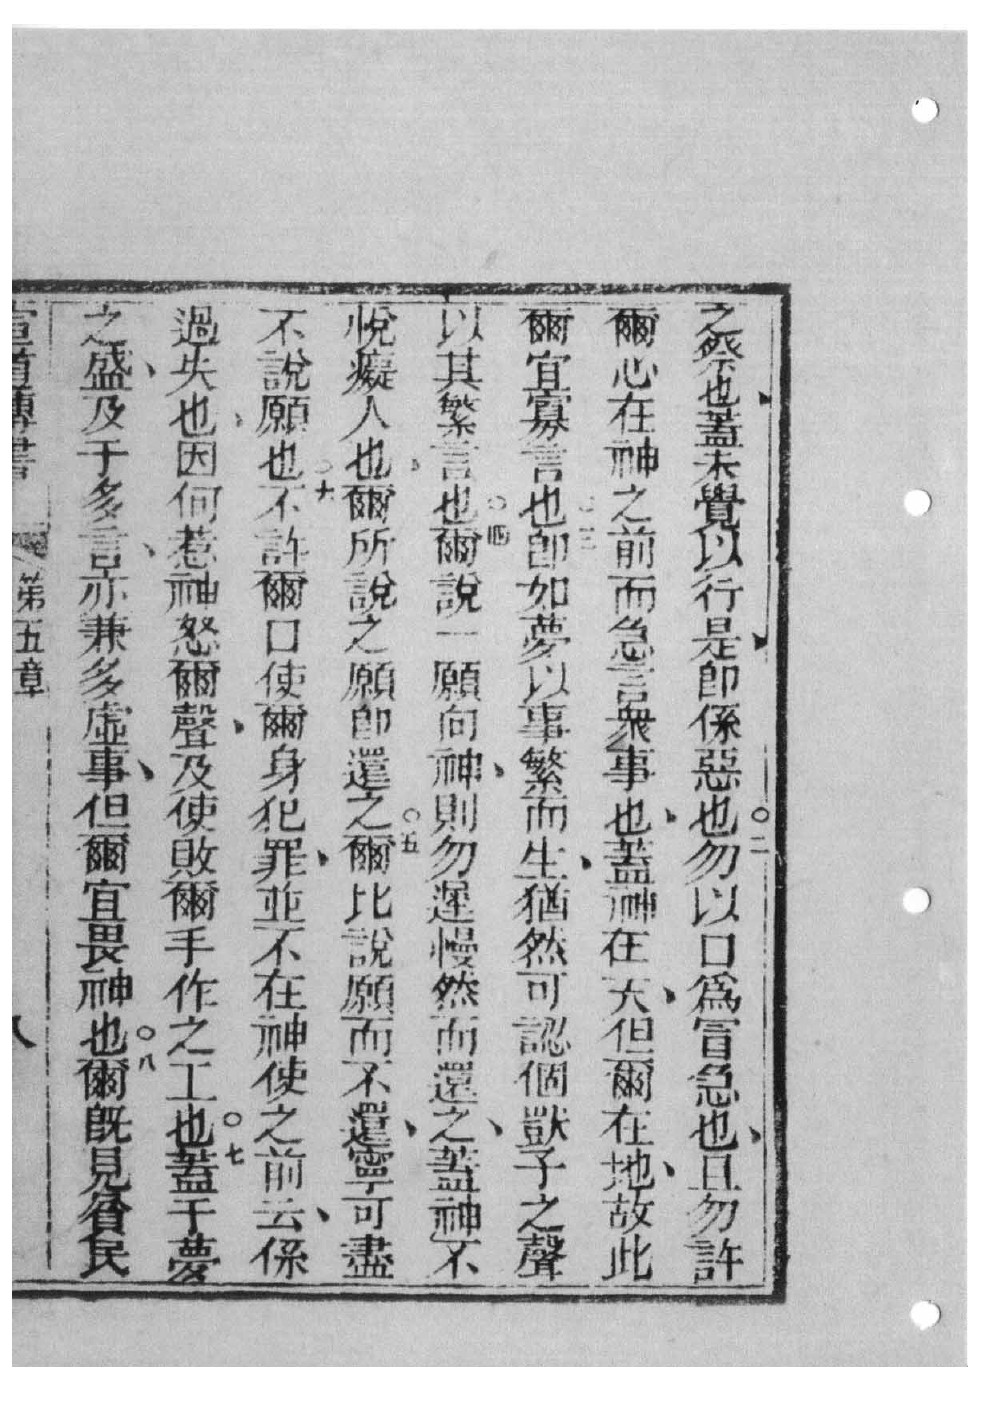 之祭也蓋未覺以行是卽係惡也○二勿以口爲冒急也且勿許
爾心在神之前而急言衆事也蓋神在天但爾在地故此
爾宜寡言也○三卽如夢以事繁而生猶然可認個獸子之聲
以其繁言也○四爾說一願向神則勿遲慢然而還之蓋神不
悅癡人也爾所說之願卽還之○五爾比說願而不還寧可盡
不說願也○六不許爾口使爾身犯罪並不在神使之前云係
過失也因何惹神怒爾聲及使敗爾手作之工也○七蓋于夢
之盛及于多言亦兼多虛事但爾宜畏神也○八爾旣見貧民
宣道傳書 第五章 八